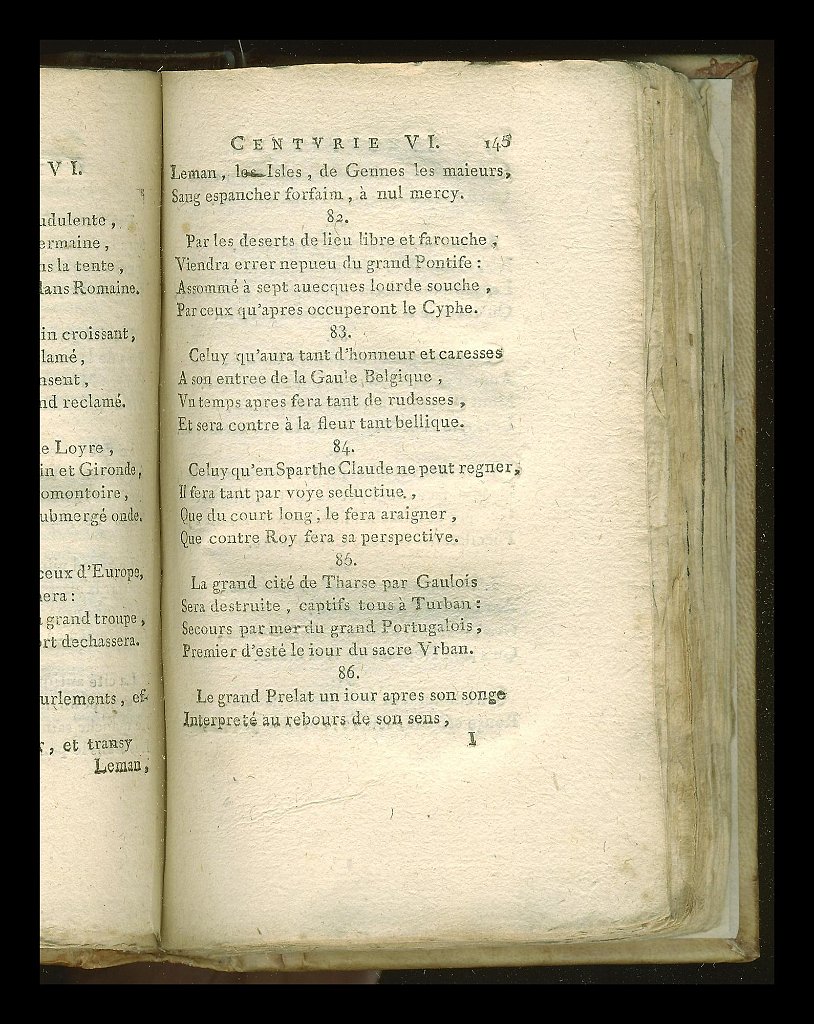 VI.
udulente,
ermaine,
ns la tente,
dans Romaine.
in croissant,
lamé,
nsent,
nd reclamé.
e Loyre,
in et Gironde,
omontoire,
ubmergé onde.
ceux d'Europe,
nera:
grand troupe,
ort dechassera.
urlements, ef-
, et transy
Leman,
CENTVRIE VI. 145
Leman, les Isles, de Gennes les maieurs,
Sang espancher forfaim, à nul mercy.
82.
Par les deserts de lieu libre et farouche,
Viendra errer nepueu du grand Pontife:
Assommé à sept auecques lourde souche,
Par ceux qu'apres occuperont le Cyphe.
83.
Celuy qu'aura tant d'honneur et caresses
A son entree de la Gaule Belgique,
Vn temps apres fera tant de rudesses,
Et sera contre à la fleur tant bellique.
84.
Celuy qu'en Sparthe Claude ne peut regner,
Il fera tant par voye seductiue,,
Que du court long, le fera araigner,
Que contre Roy fera sa perspective.
85.
La grand cité de Tharse par Gaulois
Sera destruite, captifs tous à Turban:
Secours par mer du grand Portugalois,
Premier d'esté le iour du sacre Vrban.
86.
Le grand Prelat un iour apres son songe
Interpreté au rebours de son sens,
I